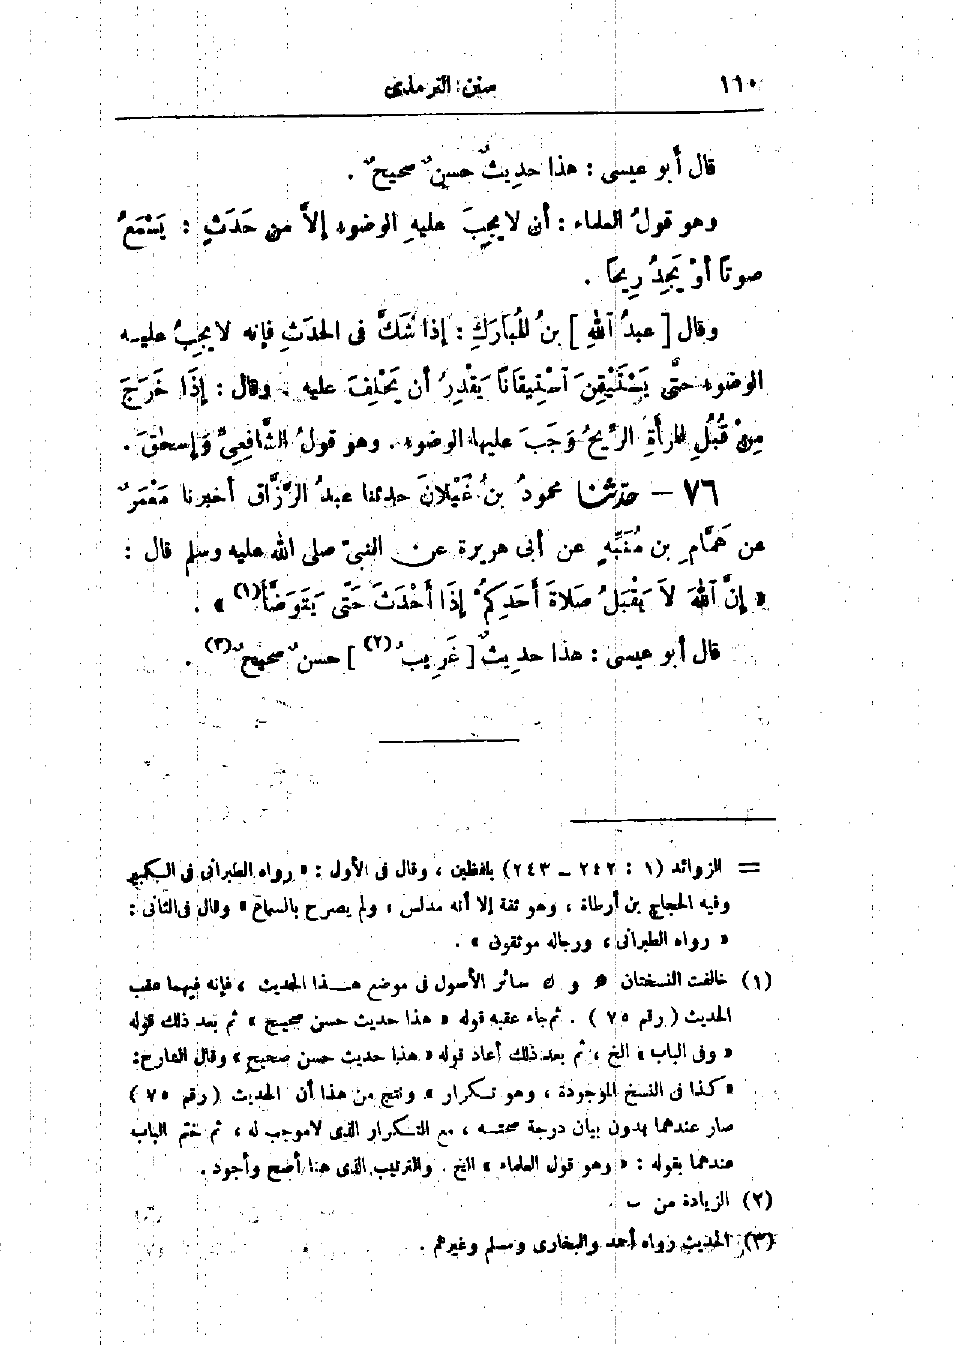 ١١٠ سنن الترمذى
قال أبو عيسى : هذا حديثٌ حسنٌ صحيحٌ .
وهو قولُ العلماء : أن لا يجِبَ عليهِ الوضوء إلاَّ من حَدَثٍ : يَسْمَعُ
صوتًا أوْ يَجِدُ رِيحًا .
وقال [ عبدُ ٱللهِ ] بنُ المُبَارَكِ : إذا شَكَّ فى الحدَثِ فإنه لا يجِبُ عليه
الوضوء حتَّى يَسْتَيْقِنَ ٱسْتِيقَانًا يَقْدِرُ أن يَحْلِفَ عليه . وقال : إذَا خَرَجَ
مِنْ قُبُلِ المرأةِ الرِّيحُ وَجَبَ عليها الوضوء . وهو قولُ الشَّافِعِىِّ وَإسحٰقَ .
٧٦ — حدّثنا محمودُ بنُ غَيْلاَنَ حدثنا عبدُ الرَّزَّاق أخبرنا مَعْمَرٌ
عن هَمَّامِ بن مُنَبِّهٍ عن أبى هريرة عن النبىّ صلى الله عليه وسلم قال :
« إنَّ ٱللهَ لاَ يَقْبَلُ صَلاَةَ أَحَدِكمُ إذَا أَحْدَثَ حَتَّى يَتَوَضَّأَ(١) » .
قال أبو عيسى : هذا حديثٌ [ غَرِيبٌ(٢) ] حسنٌ صحيحٌ(٣) .
= الزوائد (١ : ٢٤٢ – ٢٤٣) بلفظين ، وقال فى الأول : « رواه الطبرانى فى الكبير
وفيه الحجاج بن أرطاة ، وهو ثقة إلا أنه مدلس ، ولم يصرح بالسماع » وقال فى الثانى :
« رواه الطبرانى ، ورجاله موثقون » .
(١) خالفت النسختان ھ و ك سائر الأصول فى موضع هذا الحديث ، فإنه فيهما عقب
الحديث ( رقم ٧٥ ) . ثم جاء عقبه قوله « هذا حديث حسن صحيح » ثم بعد ذلك قوله
« وفى الباب » الخ ، ثم بعد ذلك أعاد قوله « هذا حديث حسن صحيح » وقال الشارح :
« كذا فى النسخ الموجودة ، وهو تكرار » ونتج من هذا أن الحديث ( رقم ٧٥ )
صار عندهما بدون بيان درجة صحته ، مع التكرار الذى لا موجب له ، ثم ختم الباب
عندهما بقوله : « وهو قول العلماء » الخ . والترتيب الذى هنا أصح وأجود .
(٢) الزيادة من ب .
(٣) الحديث رواه أحمد والبخارى ومسلم وغيرهم .